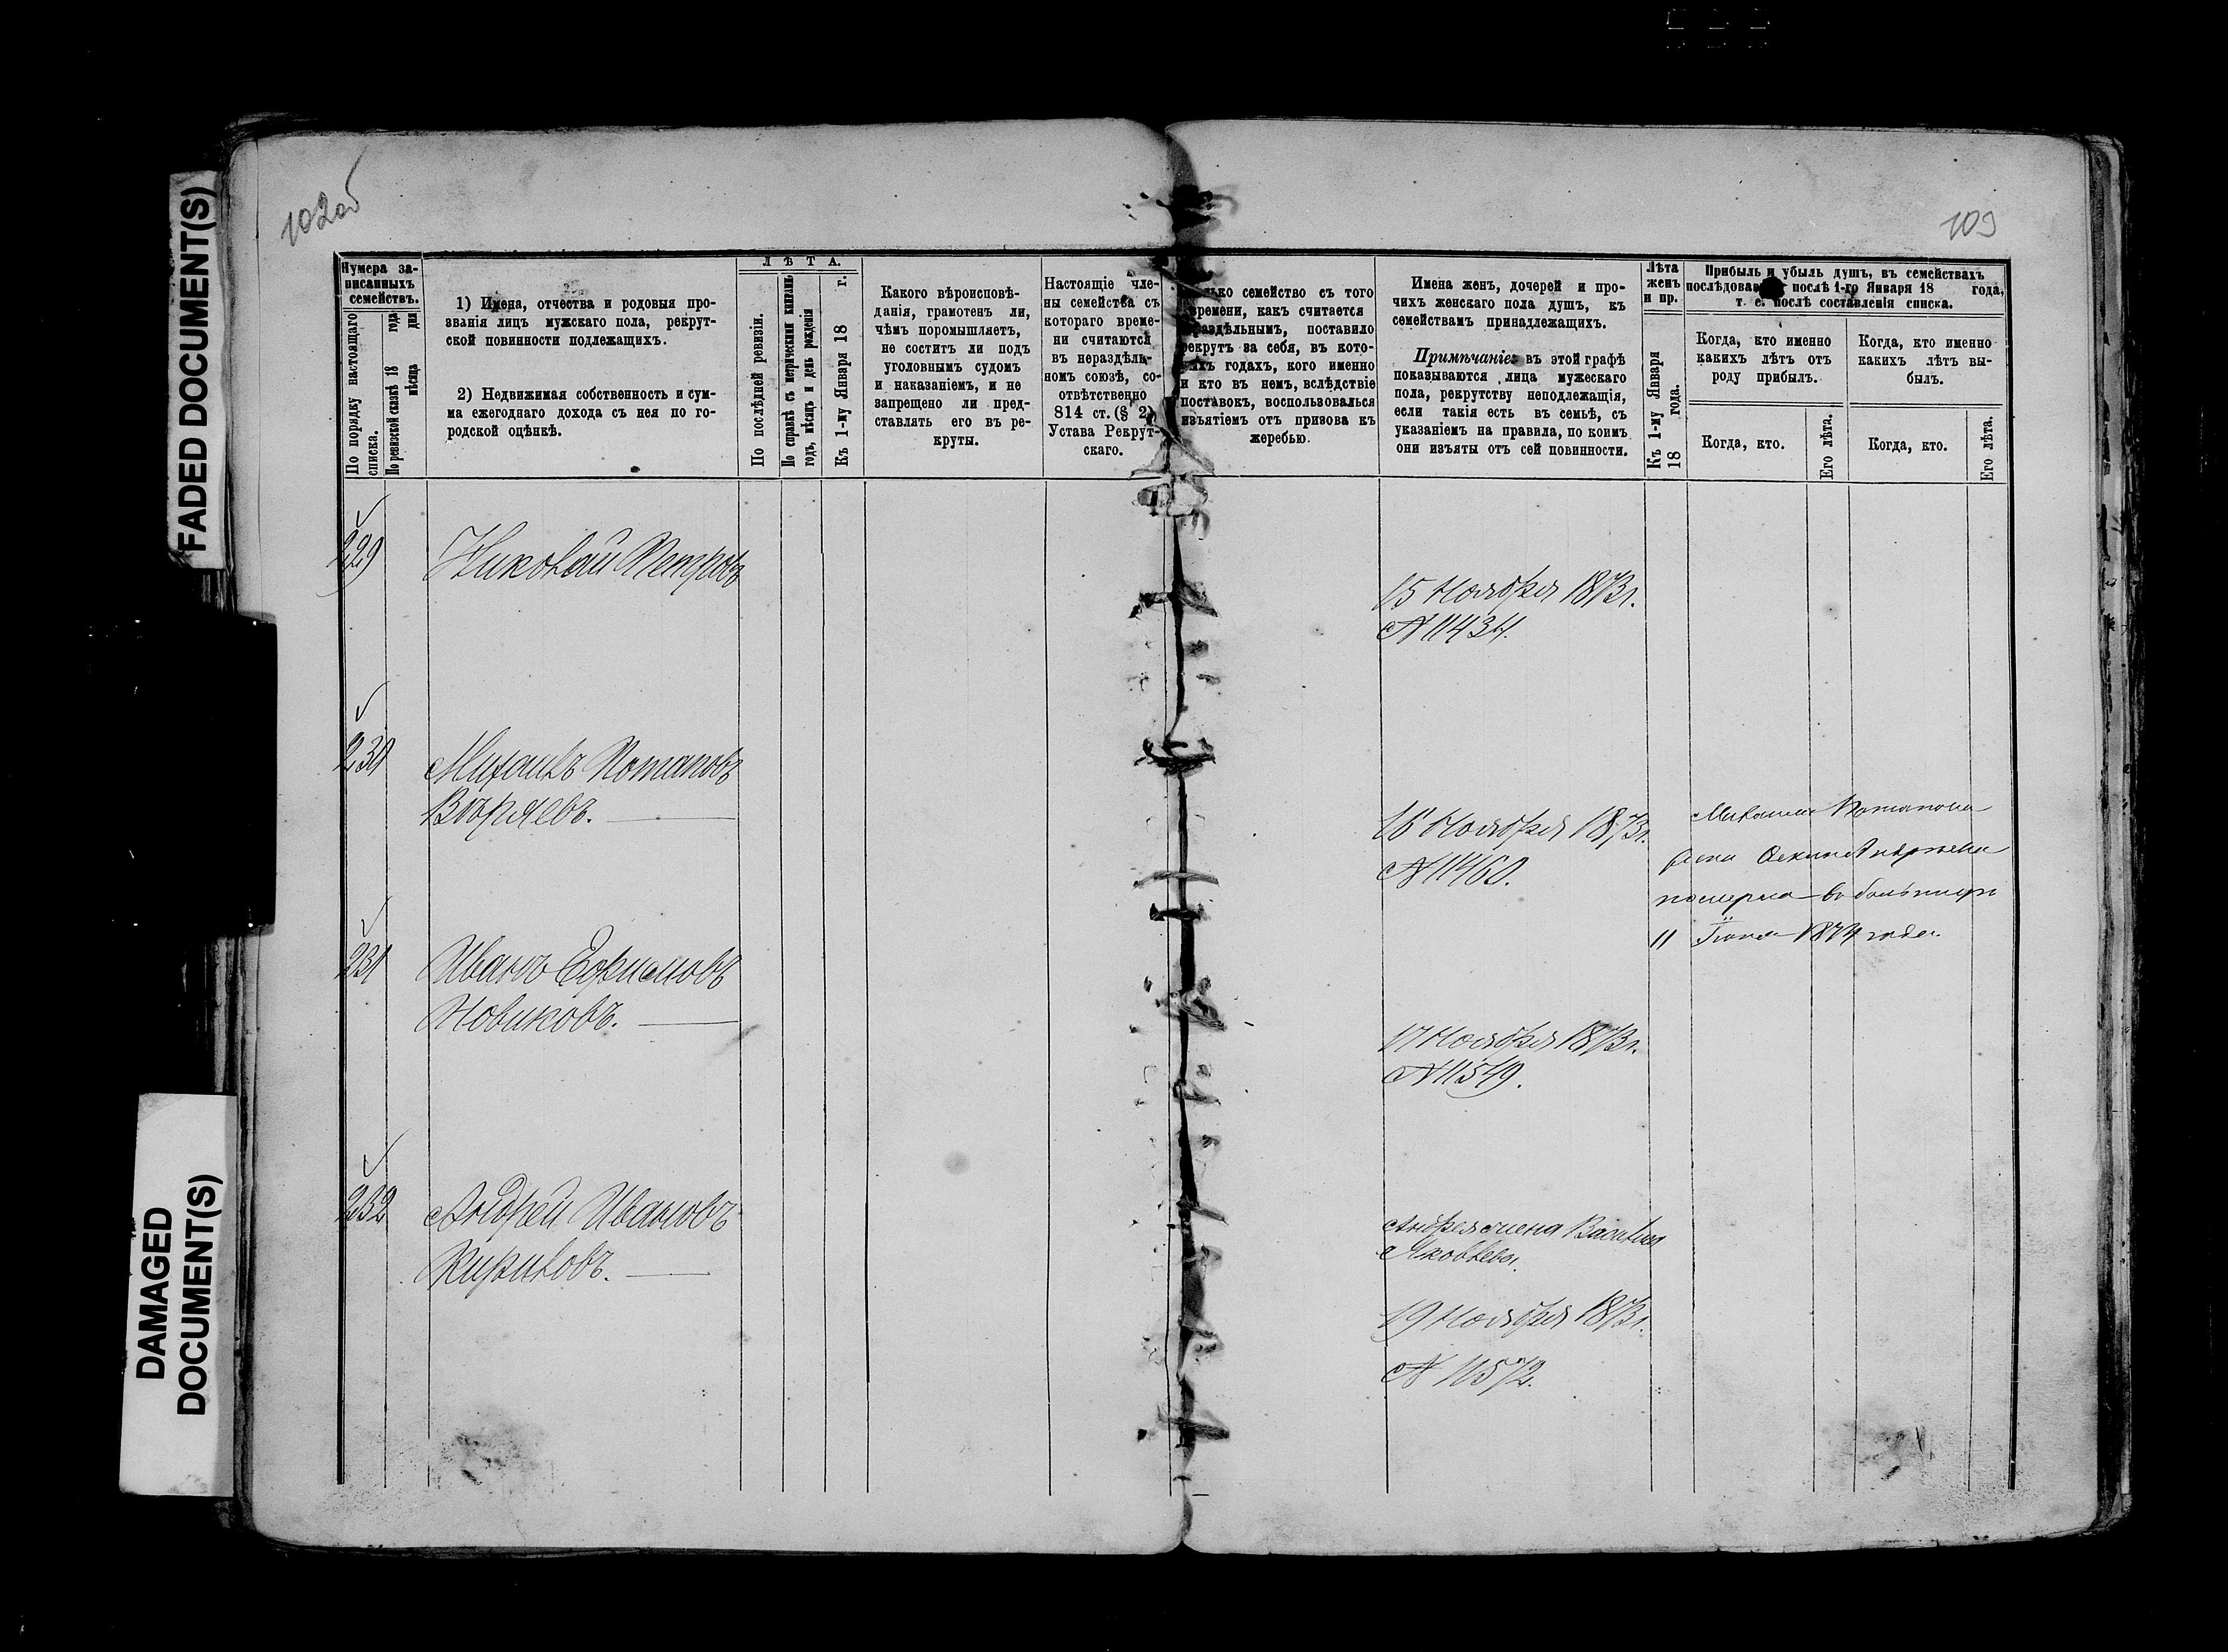 FADED DOCUMENT(S)
DAMAGED
DOCUMENT(S)
102об
103
Нумера за-
писанныхъ
семействъ.
По порядку настоящаго
списка.
По ревизской сказкѣ 18 года
мѣсяца дня
1) Имена, отчества и родовыя про-
званія лицъ мужскаго пола, рекрут-
ской повинности подлежащихъ.
2) Недвижимая собственность и сум-
ма ежегоднаго дохода съ нея по го-
родской оцѣнкѣ.
ЛѢТА.
По послѣдней ревизіи.
По справкѣ съ метрическими книгами
годъ, мѣсяцъ и день рожденія
Къ 1-му Января 18 г.
Какого вѣроисповѣ-
данія, грамотенъ ли,
чѣмъ поромышляетъ,
не соститъ ли подъ
уголовнымъ судомъ
и наказаніемъ, и не
запрещено ли пред-
ставлять его въ ре-
круты.
Настоящіе чле-
ны семейства съ
котораго време-
ни считаются
въ нераздѣль-
номъ союзѣ, со-
отвѣтственно
814 ст. (§ 2)
Устава Рекрут-
скаго.
семейство съ того
времени, какъ считается
раздѣльнымъ, поставило
рекрутъ за себя, въ кото-
рыхъ годахъ, кого именно
и кто въ немъ, вслѣдствіе
поставокъ, воспользовался
изъятіемъ отъ призова къ
жеребью.
Имена женъ, дочерей и про-
чихъ женскаго пола душъ, къ
семействамъ принадлежащихъ.
Примѣчаніе: въ этой графѣ
показываются лица мужескаго
пола, рекрутству неподлежащія,
если такія есть въ семьѣ, съ
указаніемъ на правила, по коимъ
они изъяты отъ сей повинности.
Лѣта
женъ
и пр.
Къ 1-му Января
18 года.
Прибыль и убыль душъ, въ семействахъ
послѣ 1-го Января 18 года,
т. е. послѣ составленія списка.
Когда, кто именно
какихъ лѣтъ отъ
роду прибылъ.
Когда, кто именно
какихъ лѣтъ вы-
былъ.
Когда, кто.
Его лѣта.
Когда, кто.
Его лѣта.
229
Николай Петровъ
15 Ноября 1873 г.
№ 11434.
230
Михаилъ Потаповъ
Вѣряевъ.
16 Ноября 1873 г.
№ 11460.
Михаила Потапова
померла въ больницѣ
11 1874 года.
231
Иванъ Ефимовъ
Новиковъ.
17 Ноября 1873 г.
№ 11549.
232
Андрей Ивановъ
Кириловъ.
Андрея жена Василиса
Яковлева.
19 Ноября 1873 г.
№ 11572.